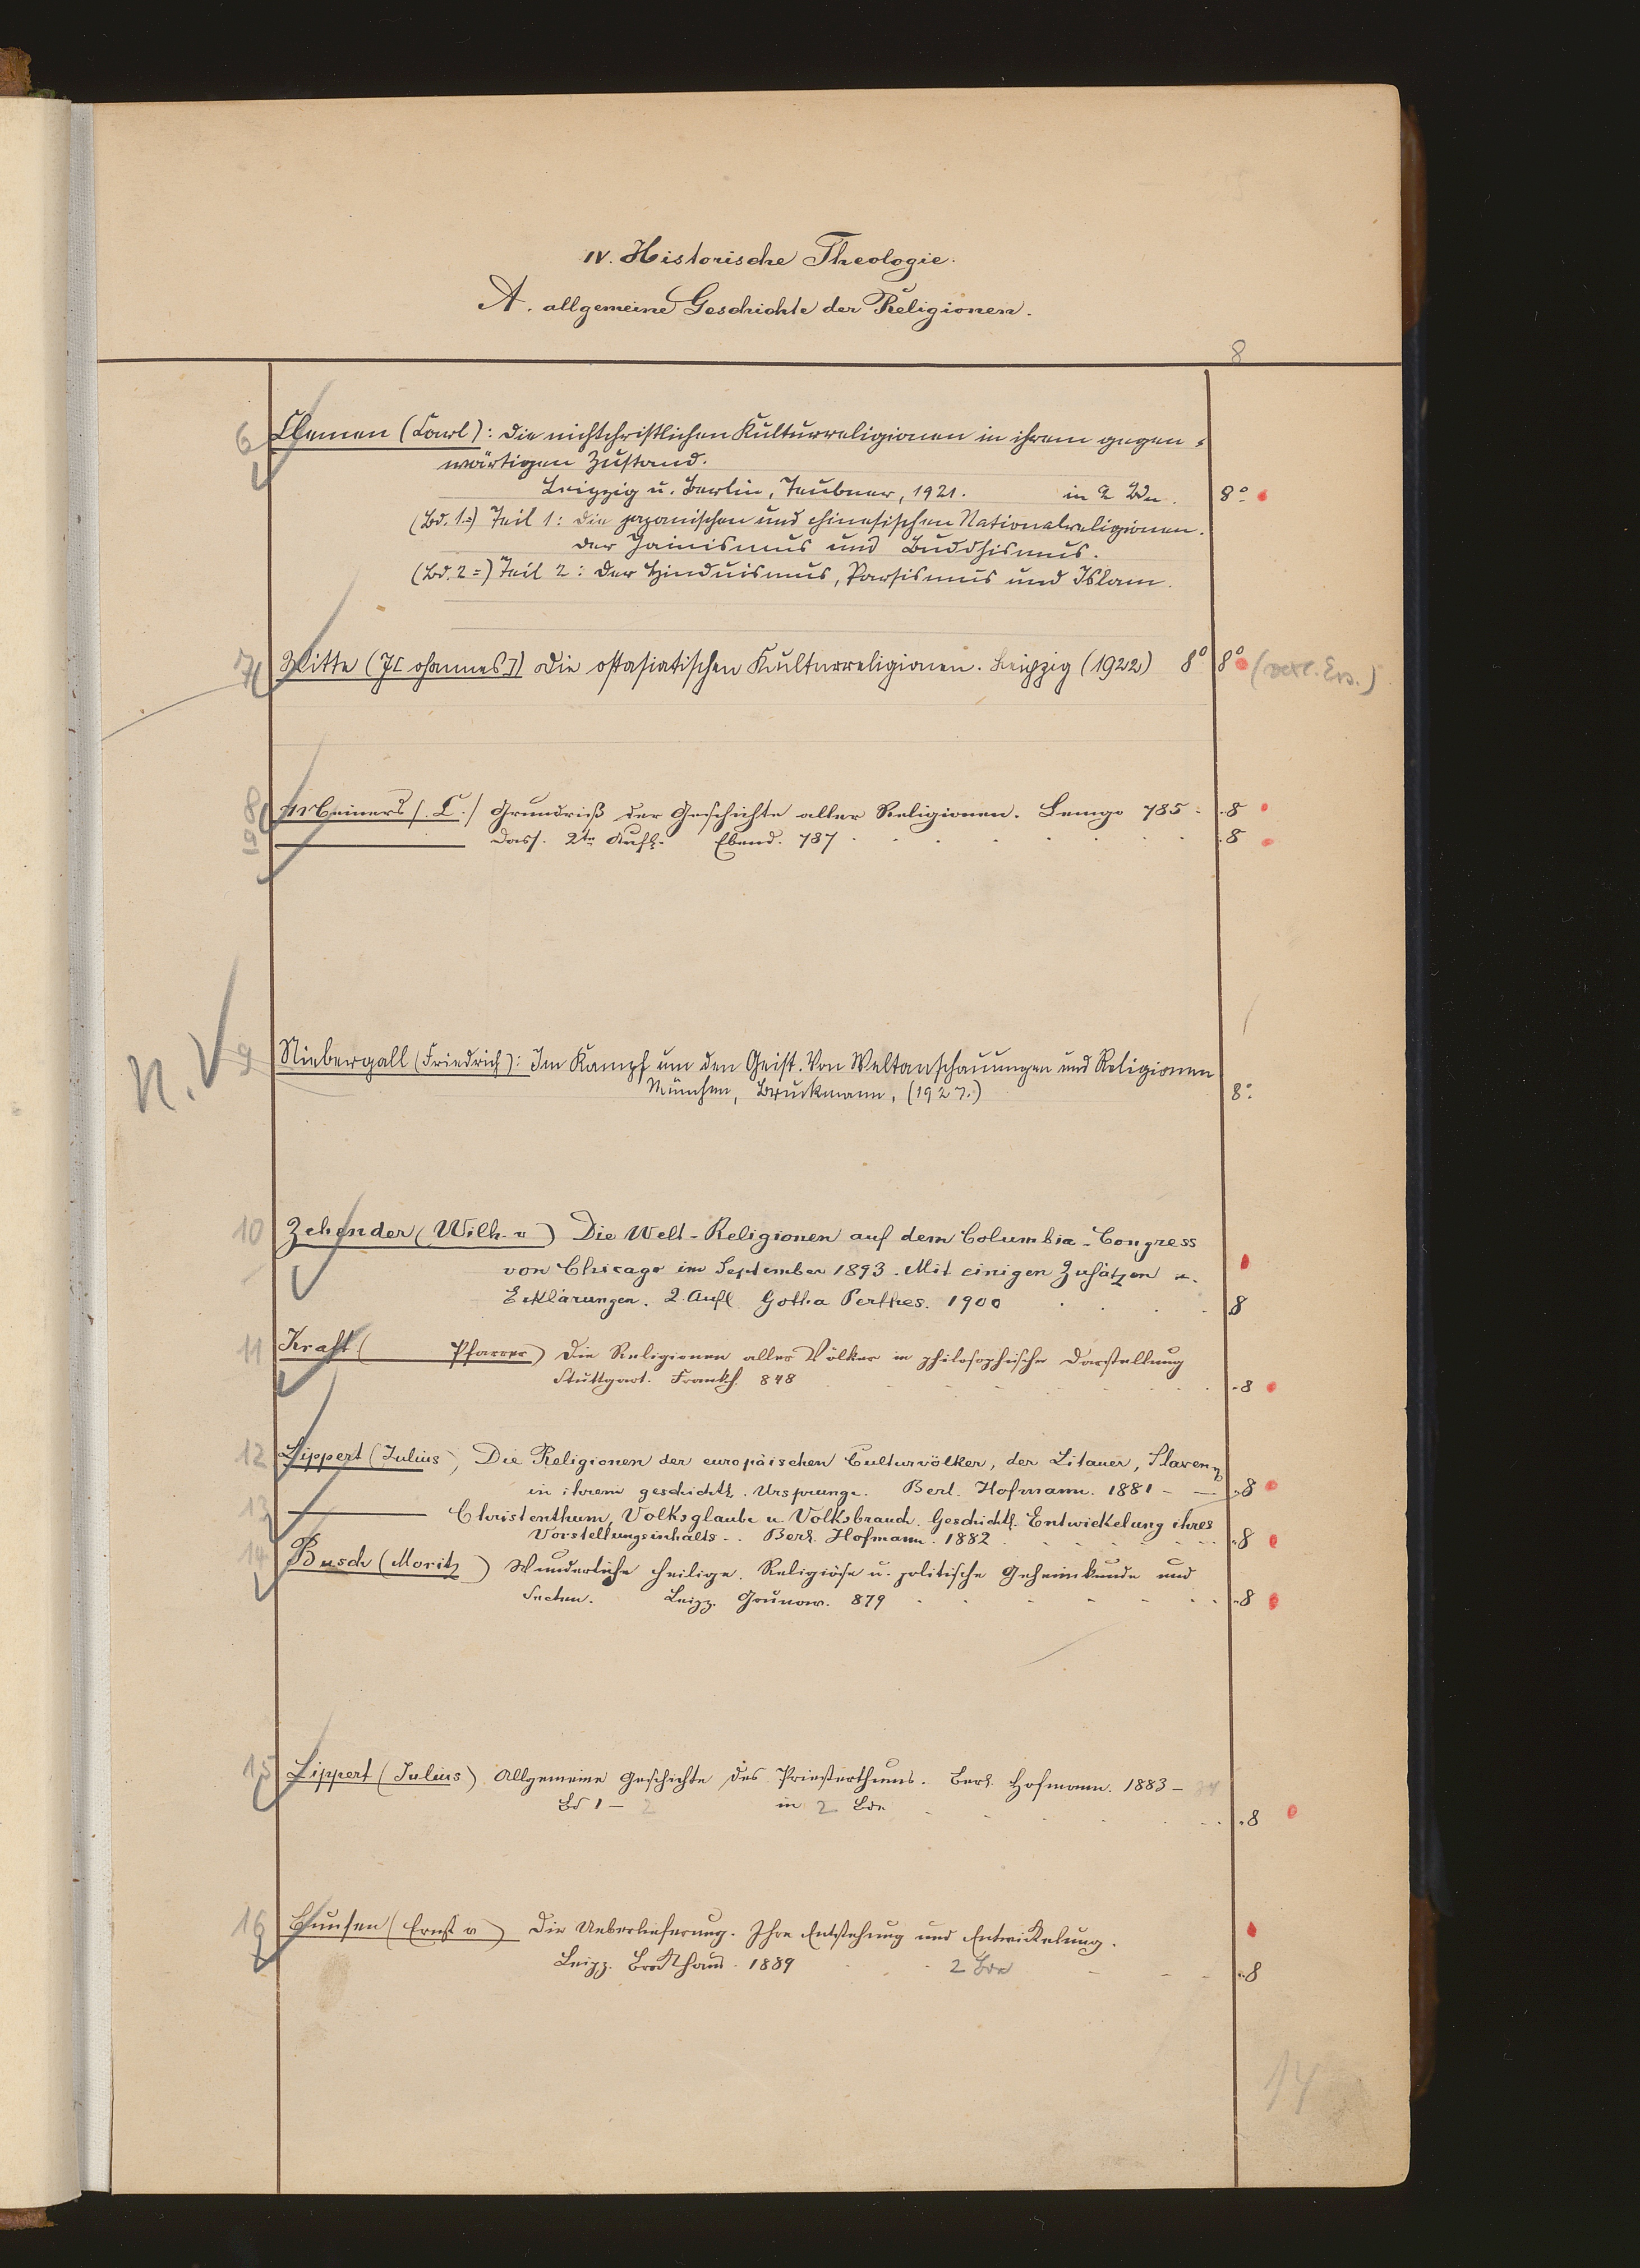 IV. Historische Theologie.
A. allgemeine Geschichte der Religionen.
8
6 Clemen (Carl): Die nichtchristlichen Kulturreligionen in ihrem gegen-
wärtigen Zustand.
Leipzig u. Berlin, Teubner, 1921. in 2 Bdn. 8°
(Bd. 1=) Teil 1: Die japanischen und chinesischen Nationalreligionen.
Der Jainismus und Buddhismus.
(Bd. 2=) Teil 2: Der Hinduismus, Parsismus und Islam.
7 Witte (J[ohannes]) Die ostasiatischen Kulturreligionen. Leipzig (1922) 8° 8°
8 Meiners (C.) Grundriß der Geschichte aller Religionen. Lemgo 785 . 8
9 Dass. 2te Aufl. Ebend. 787 . 8
n. V 9 Niebergall (Friedrich): Im Kampf um den Geist. Von Weltanschauungen und Religionen
München, Bruckmann, (1927.) 8°
10 Zehender (Wilh. v) Die Welt-Religionen auf dem Columbia-Congress
von Chicago im September 1893. Mit einigen Zusätzen u.
Erklärungen. 2. Aufl. Gotha Perthes. 1900 8
11 Kraft ( Pfarrer) Die Religionen aller Völker in philosophischer Darstellung
Stuttgart. Frankh. 848 . 8
12 Lippert (Julius), Die Religionen der europäischen Culturvölker, der Litauer, Slaven
in ihrem geschichtl. Ursprunge. Berl. Hofmann. 1881 - 8
13 Christenthum, Volksglaube u. Volksbrauch. Geschichtl. Entwickelung ihres
Vorstellungsinhalts.. Berl. Hofmann. 1882 8
14 Busch (Moritz) Wunderliche Heilige. Religiöse u. politische Geheimbünde und
Secten. Leipz. Grunow. 879 8
15 Lippert (Julius) Allgemeine Geschichte des Priesterthums. Berl. Hofmann. 1883-84
Bd 1-2 in 2 Bdn 8
16 Bunsen (Ernst v) Die Ueberlieferung. Ihre Entstehung und Entwickelung.
Leipz. Brockhaus. 1889 2 Bde 8
14